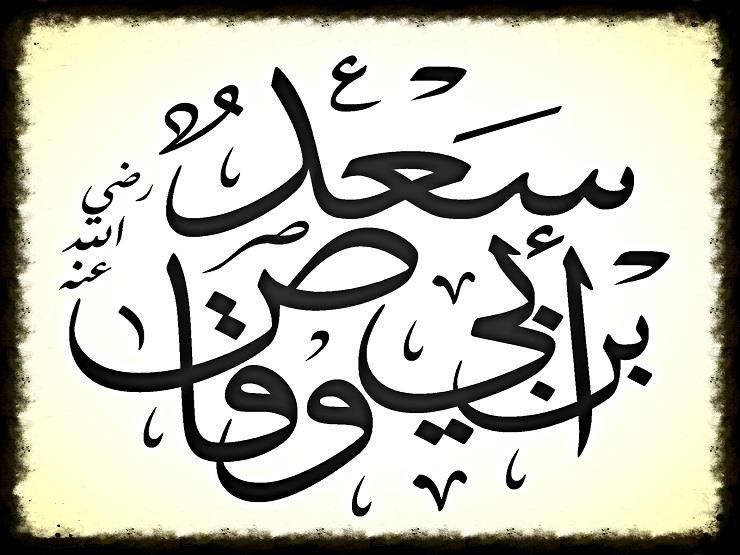 سَعْدٌ
بن أبي وقاص
رضي
الله
عنه